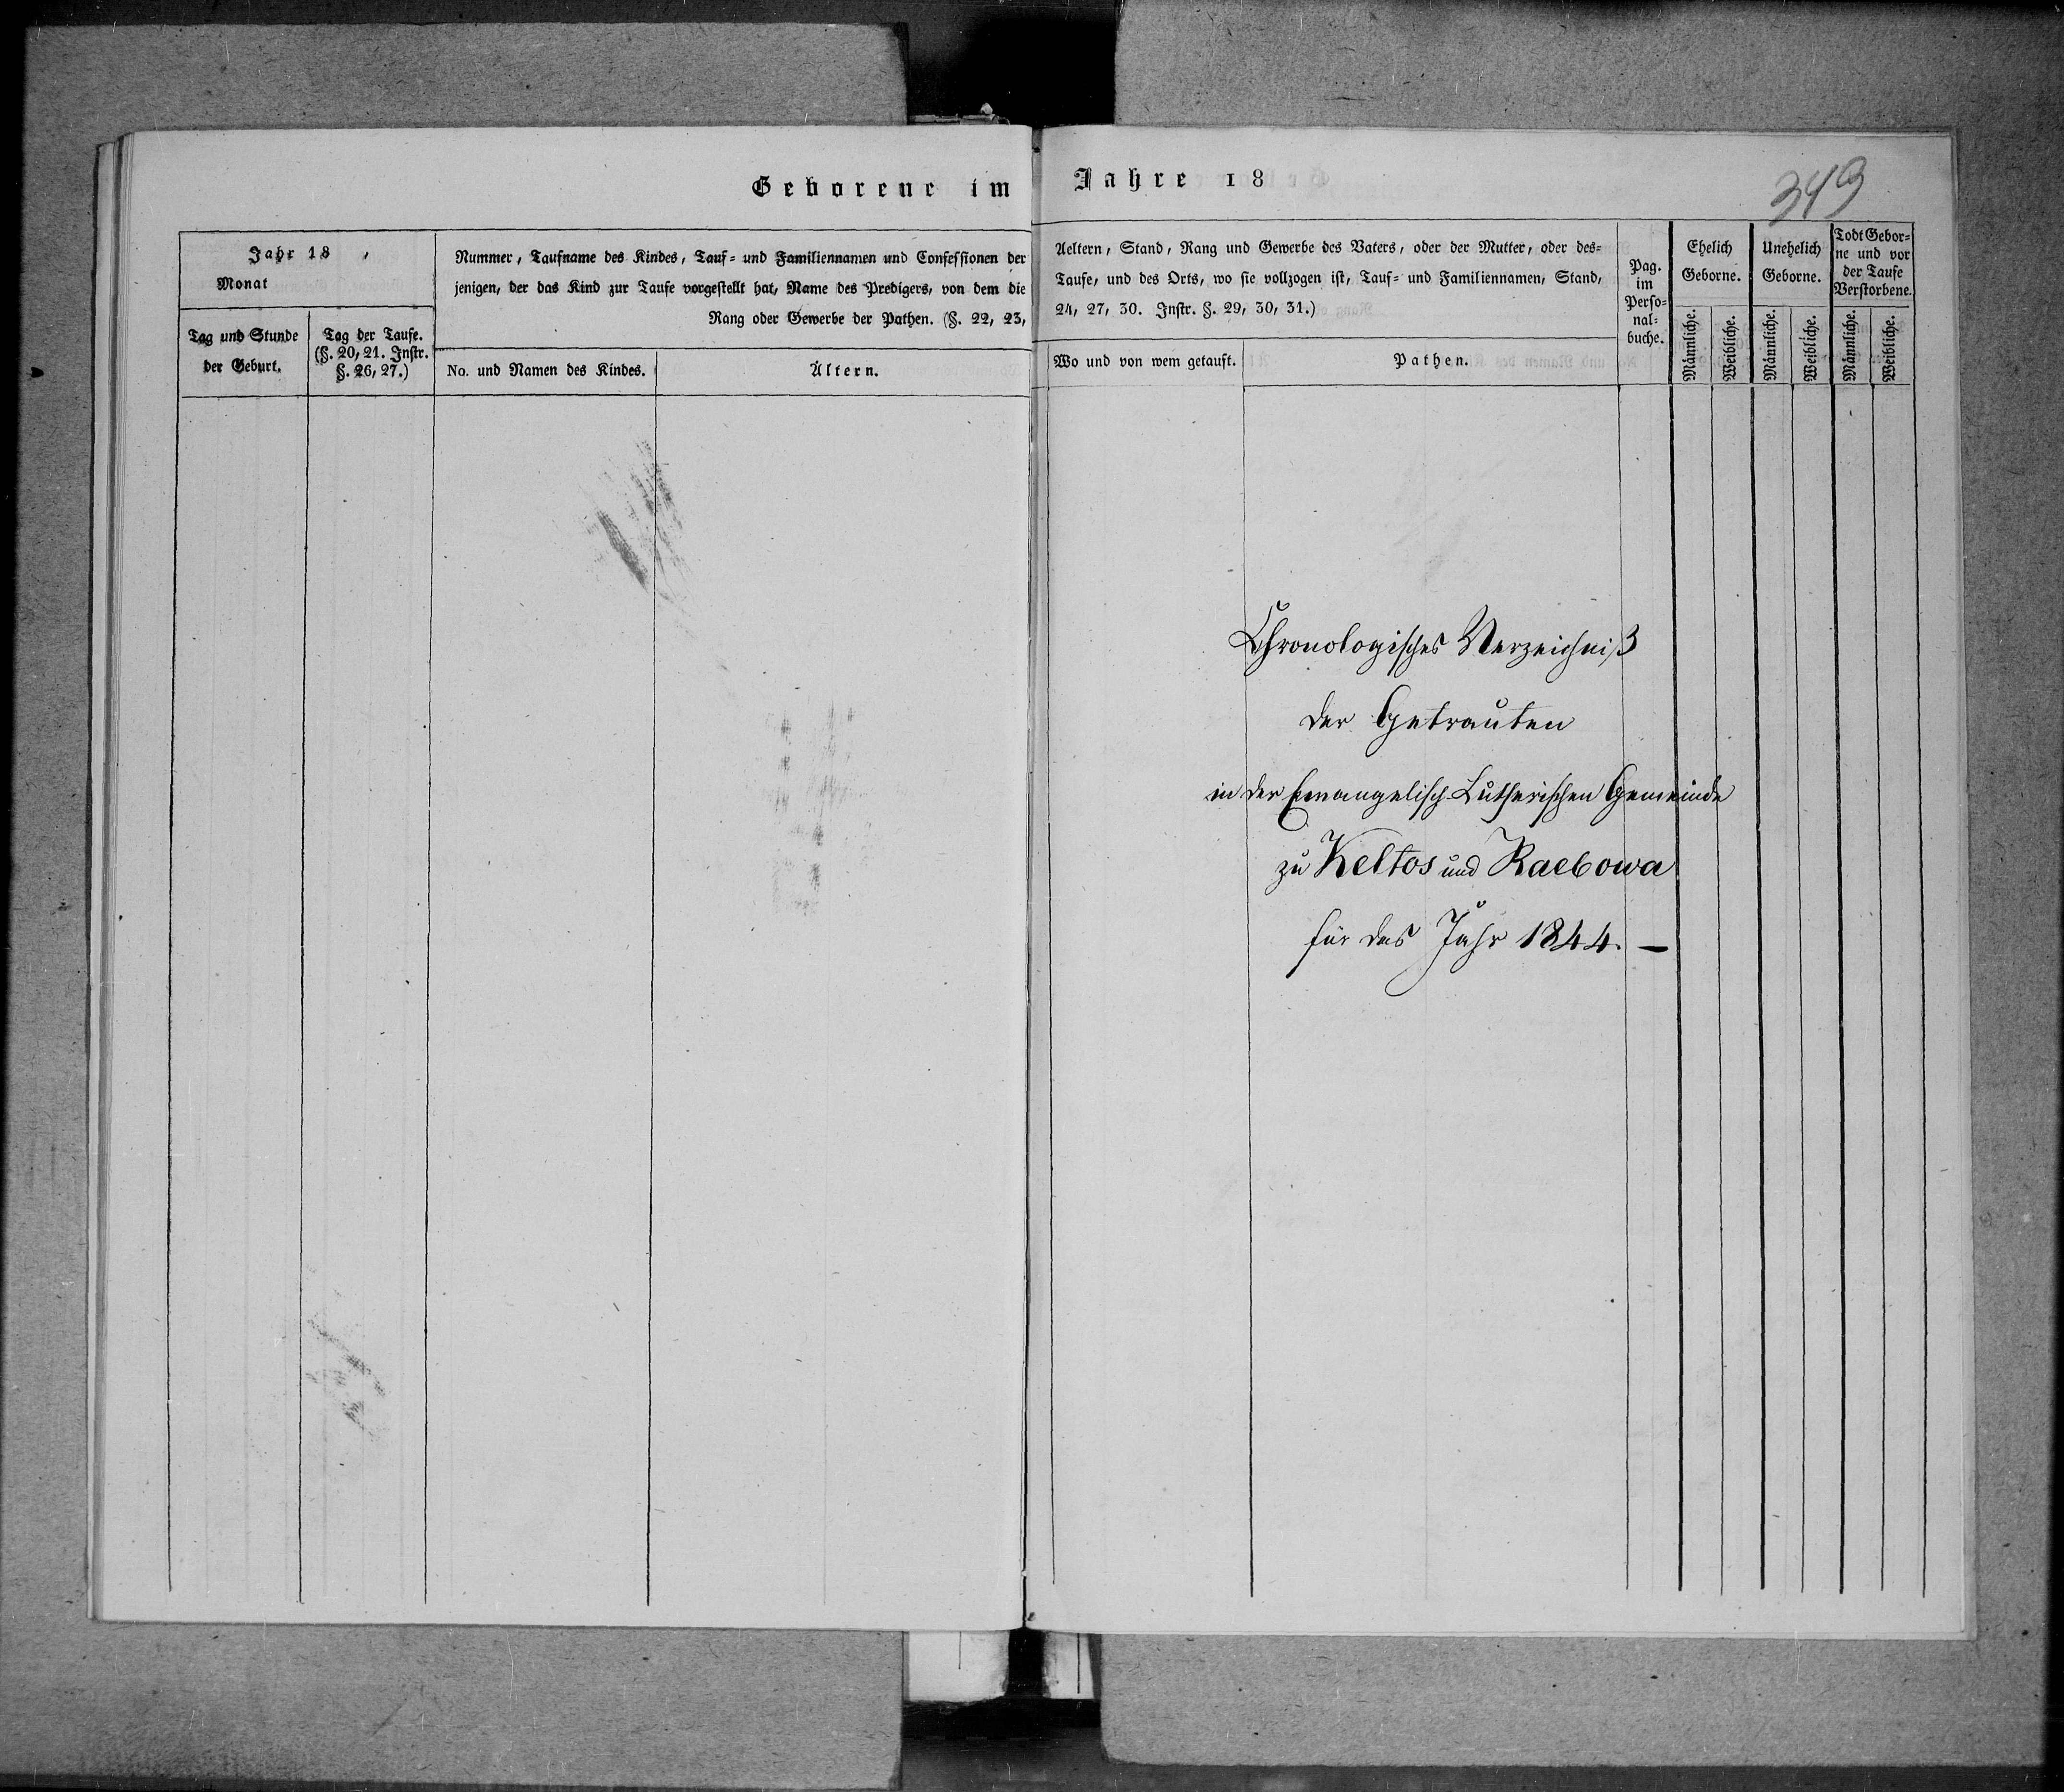 Geborene im Jahre 18
349
Jahr 18 ,
Monat
Tag und Stunde
der Geburt.
Tag der Taufe.
(§. 20, 21. Instr.
§. 26, 27.)
Nummer, Taufname des Kindes, Tauf- und Familiennamen und Confessionen der
jenigen, der das Kind zur Taufe vorgestellt hat, Name des Predigers, von dem die
Rang oder Gewerbe der Pathen. (§. 22, 23,
No. und Namen des Kindes.
Ältern.
Aeltern, Stand, Rang und Gewerbe des Vaters, oder der Mutter, oder des-
Taufe, und des Orts, wo sie vollzogen ist, Tauf- und Familiennamen, Stand,
24, 27, 30. Instr. §. 29, 30, 31.)
Wo und von wem getauft.
Pathen.
Pag.
im
Perso-
nal-
buche.
Ehelich
Geborne.
Männliche.
Weibliche.
Unehelich
Geborne.
Männliche.
Weibliche.
Todt Gebor-
ne und vor
der Taufe
Verstorbene.
Männliche.
Weibliche.
Chronologisches Verzeichniß
der Getrauten
in der Evangelisch-Lutherischen Gemeinde
zu Keltos und Raebowa
für das Jahr 1844. —